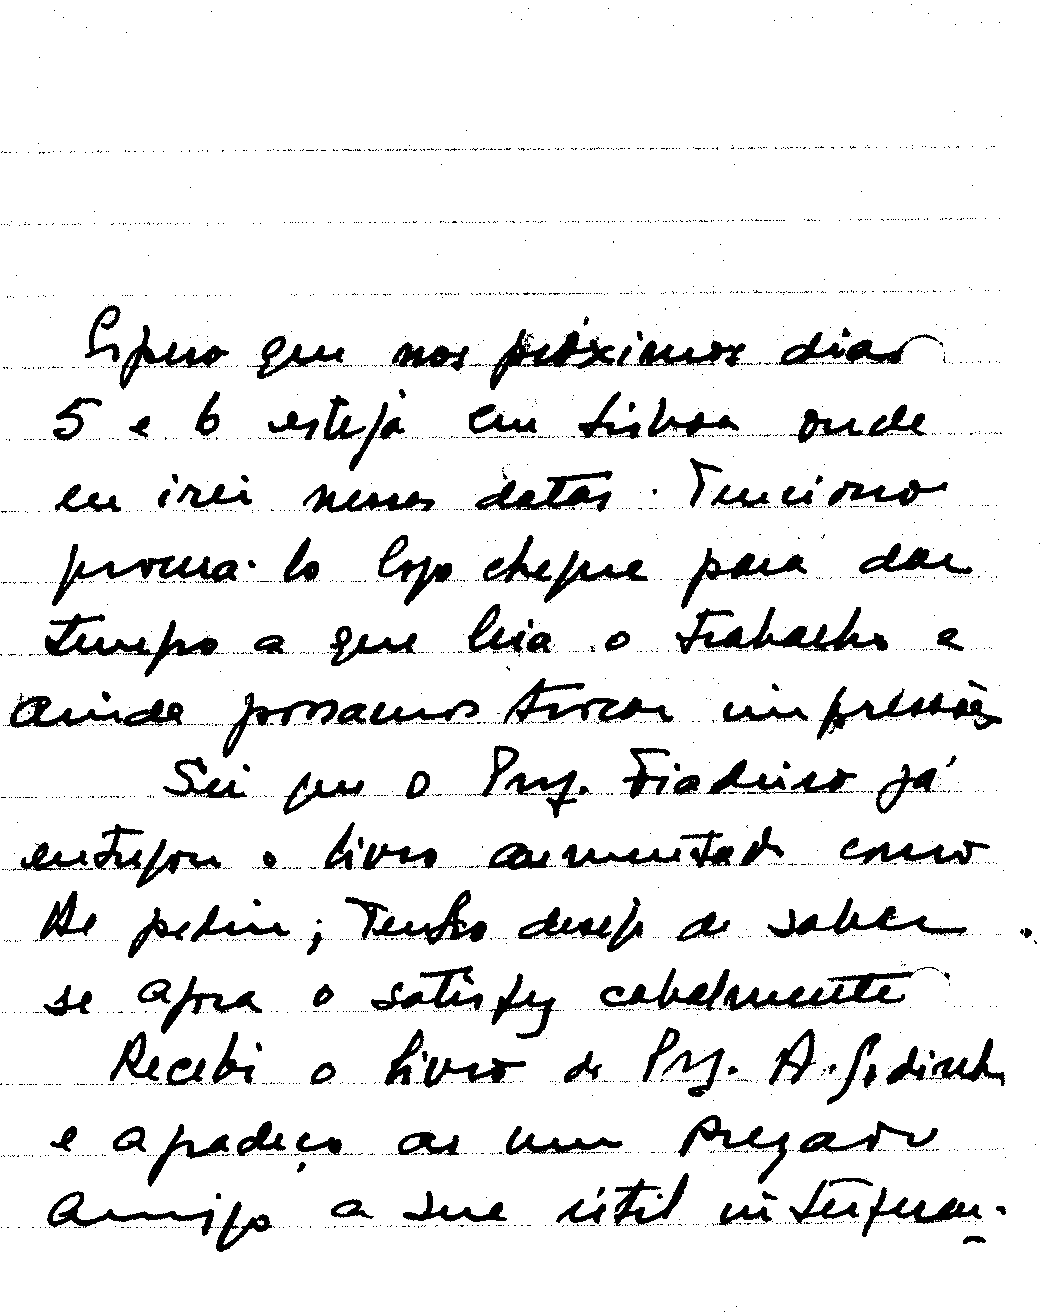 Espero que nos próximos dias
5 e 6 esteja em Lisboa onde
eu irei nessas datas. Tenciono
procura-lo logo chegue para dar
tempo a que leia o trabalho e
ainda possamos trocar impressões
Sei que o Prof. Fiadeiro já
entregou o livro aumentado como
lhe pedira; Tenho desejo de saber
se agora o satisfez cabalmente
Recebi o livro do Prof. A. Godinho
e agradeço ao meu Prezado
Amigo a sua útil interferen-